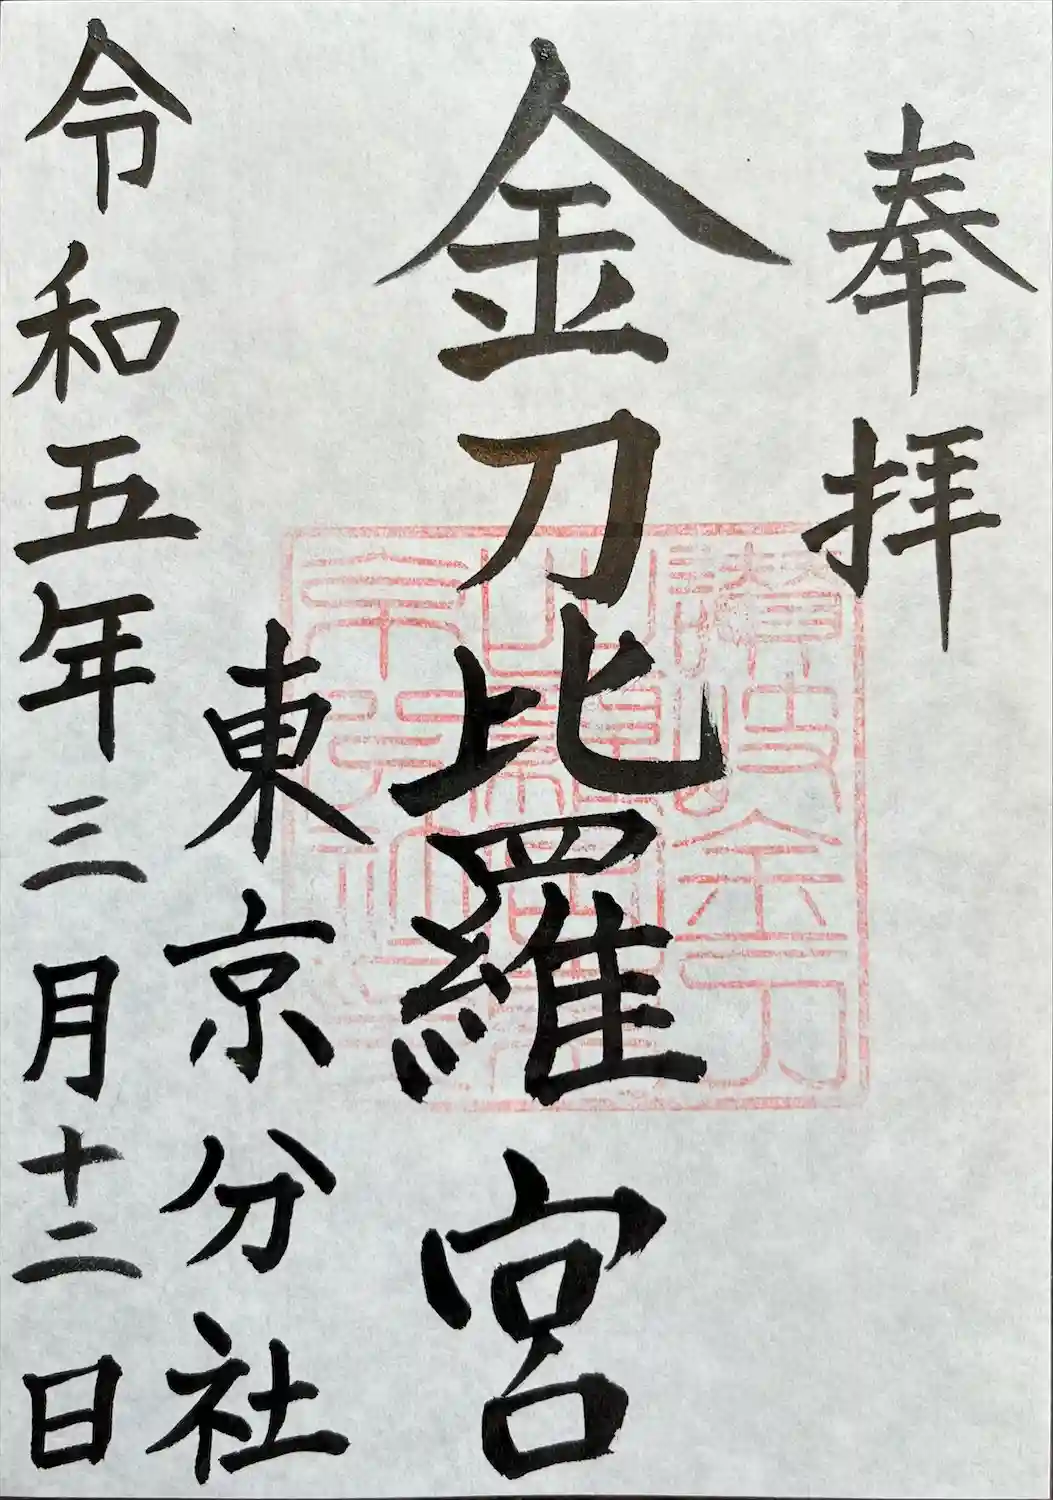 奉拝
金刀比羅宮
東京分社
令和五年三月十二日